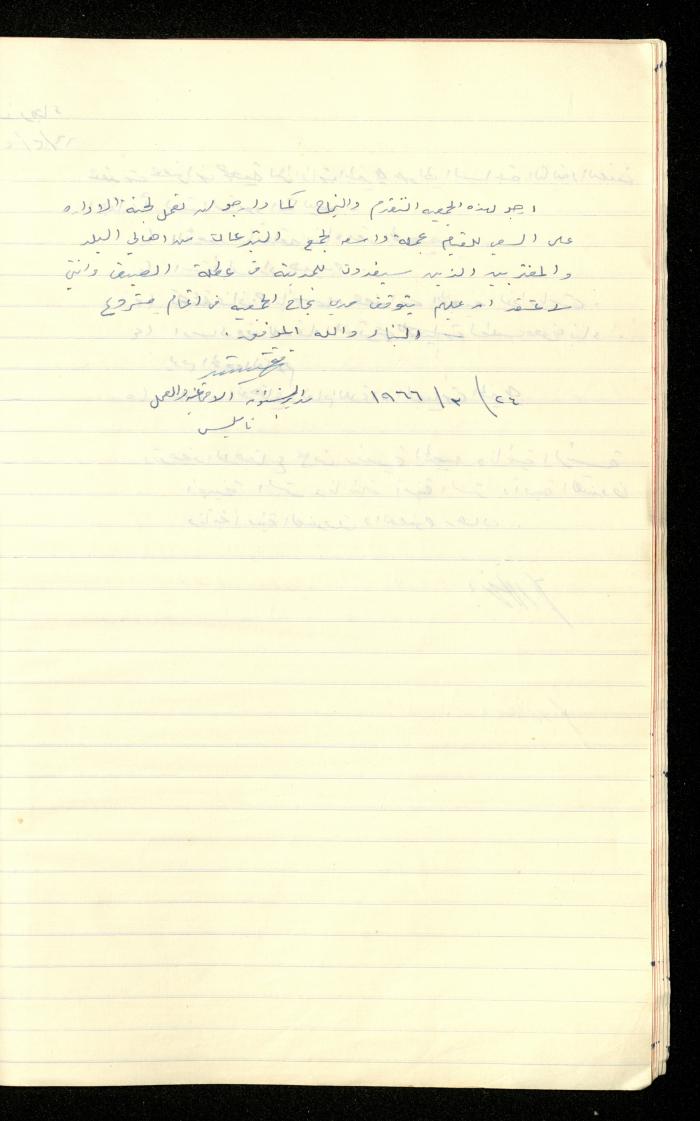 ارجو لهذه الجمعيه التقدم والنجاح كما وارجو ان تعمل لجنة الاداره
على السعي للقيام بحملة واسعه لجمع التبرعات من اهالي البلد
والمغتربين الذين سيفدون للمدينة في عطلة الصيف وانني
لاعتقد ان عليهم يتوقف مدى نجاح الجمعيه في اتمام مشروع
البناء والله الموفق .
٢٤/ ٣/ ١٩٦٦ مدير الشؤون الاجتماعيه والعمل
نابلس